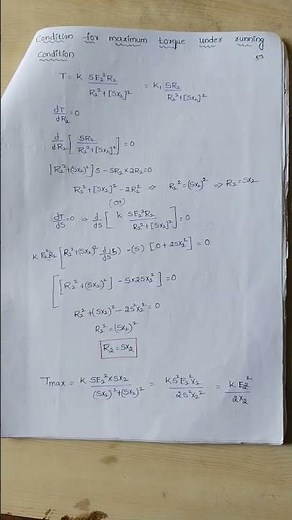 Condition for maximum torque under running
condition
T = K SE₂²R₂ / R₂²+[Sx₂]² = K₁ SR₂ / R₂²+[Sx₂]²
dT/dR₂ = 0
d/dR₂ [ SR₂ / R₂²+[Sx₂]² ] = 0
[R₂²+(Sx₂)²] S - SR₂×2R₂ = 0
R₂²+[Sx₂]² - 2R₂² ⇒ R₂² = (Sx₂)² ⇒ R₂ = Sx₂
(or)
dT/dS = 0 ⇒ d/dS [ K SE₂²R₂ / R₂²+[Sx₂]² ] = 0
K E₂²R₂ [R₂²+(Sx₂)² d/dS (S) - (S) [0+2Sx₂²] = 0
[[R₂²+(Sx₂)²] - S×2Sx₂²] = 0
R₂²+(Sx₂)² - 2S²x₂² = 0
R₂² = (Sx₂)²
R₂ = Sx₂
Tmax = K SE₂²×Sx₂ / (Sx₂)²+(Sx₂)² = KS²E₂²x₂ / 2S²x₂² = K E₂² / 2x₂